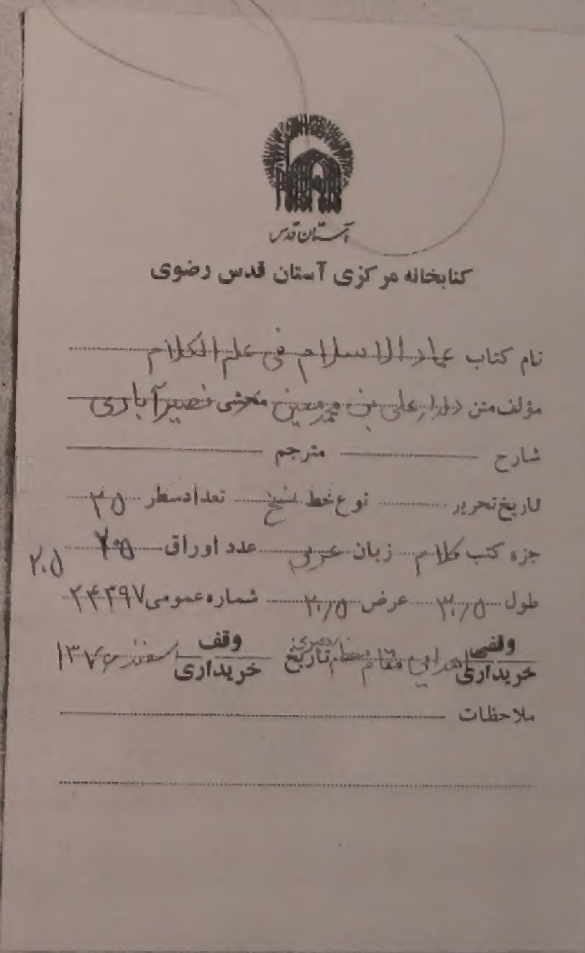 آستان قدس
کتابخانه مرکزی آستان قدس رضوی
نام کتاب عماد الاسلام فی علم الکلام
مؤلف متن دلدار علی بن محمد معین محشی نصیرآبادی
شارح مترجم
تاریخ تحریر نوع خط نسخ تعداد سطر ۳۵
جزء کتب کلام زبان عربی عدد اوراق ۲۰۵
طول ۳۰/۵ عرض ۲۰/۵ شماره عمومی ۲۴۳۹۷
وقفی خریداری اهدایی مقام معظم رهبری تاریخ وقف خریداری اسفند ۱۳۷۶
ملاحظات